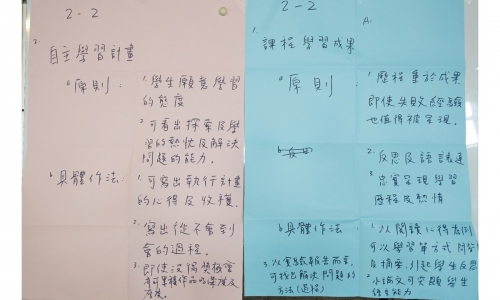 2-2
2.
自主學習計畫
a 原則:
1. 學生願意學習
的態度
2. 可看出探索及學
習的熱忱及解決
問題的能力。
b 具體作法:
1. 可寫出執行計畫
的心得及收穫。
2. 寫出從不會到
會的過程。
3. 即使沒得獎
2-2
A.
1.
課程學習成果
a 原則:
1. 歷程重於成果
即使失敗經驗
也值得被呈現。
2. 反思及語
3. 忠實呈現學習
歷程及熱情
b 具體作法:
1. 以閱讀心得為例
可以學習單方式
摘要,引起學生反思
2. 小論文可突顯學生
能力
3. 以實驗報告而言,
可找出解決問題的
方法(過程)